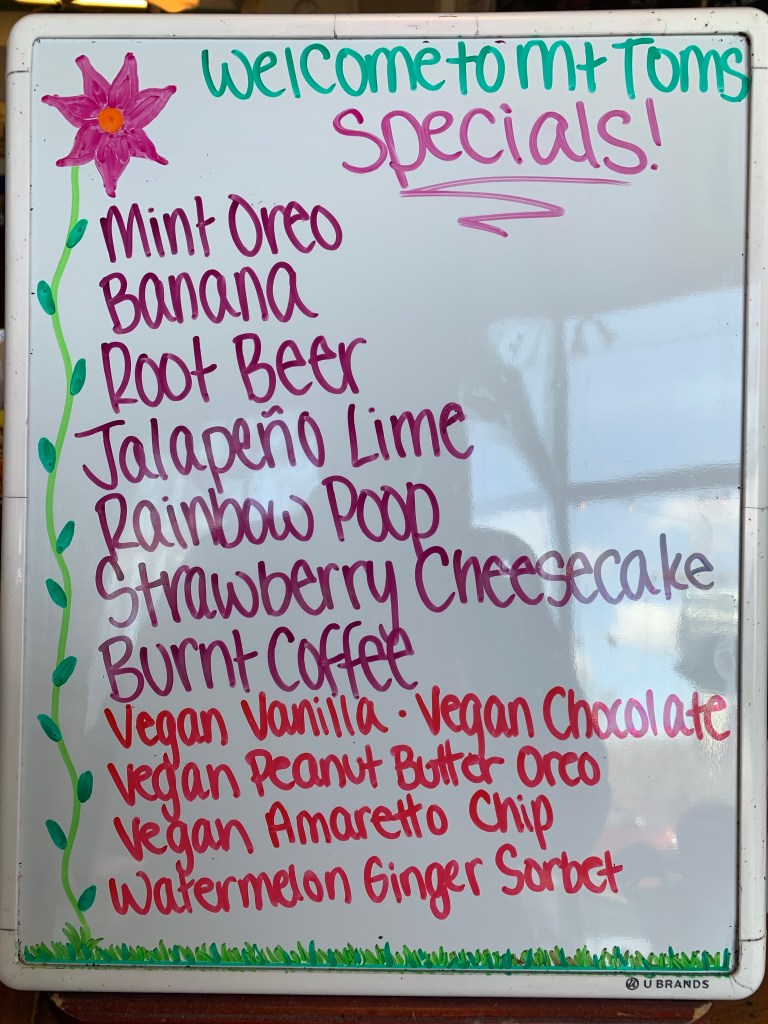 Welcome to Mt Toms
Specials!
Mint Oreo
Banana
Root Beer
Jalapeño Lime
Rainbow Poop
Strawberry Cheesecake
Burnt Coffee
Vegan Vanilla · Vegan Chocolate
Vegan Peanut Butter Oreo
Vegan Amaretto Chip
Watermelon Ginger Sorbet
U BRANDS